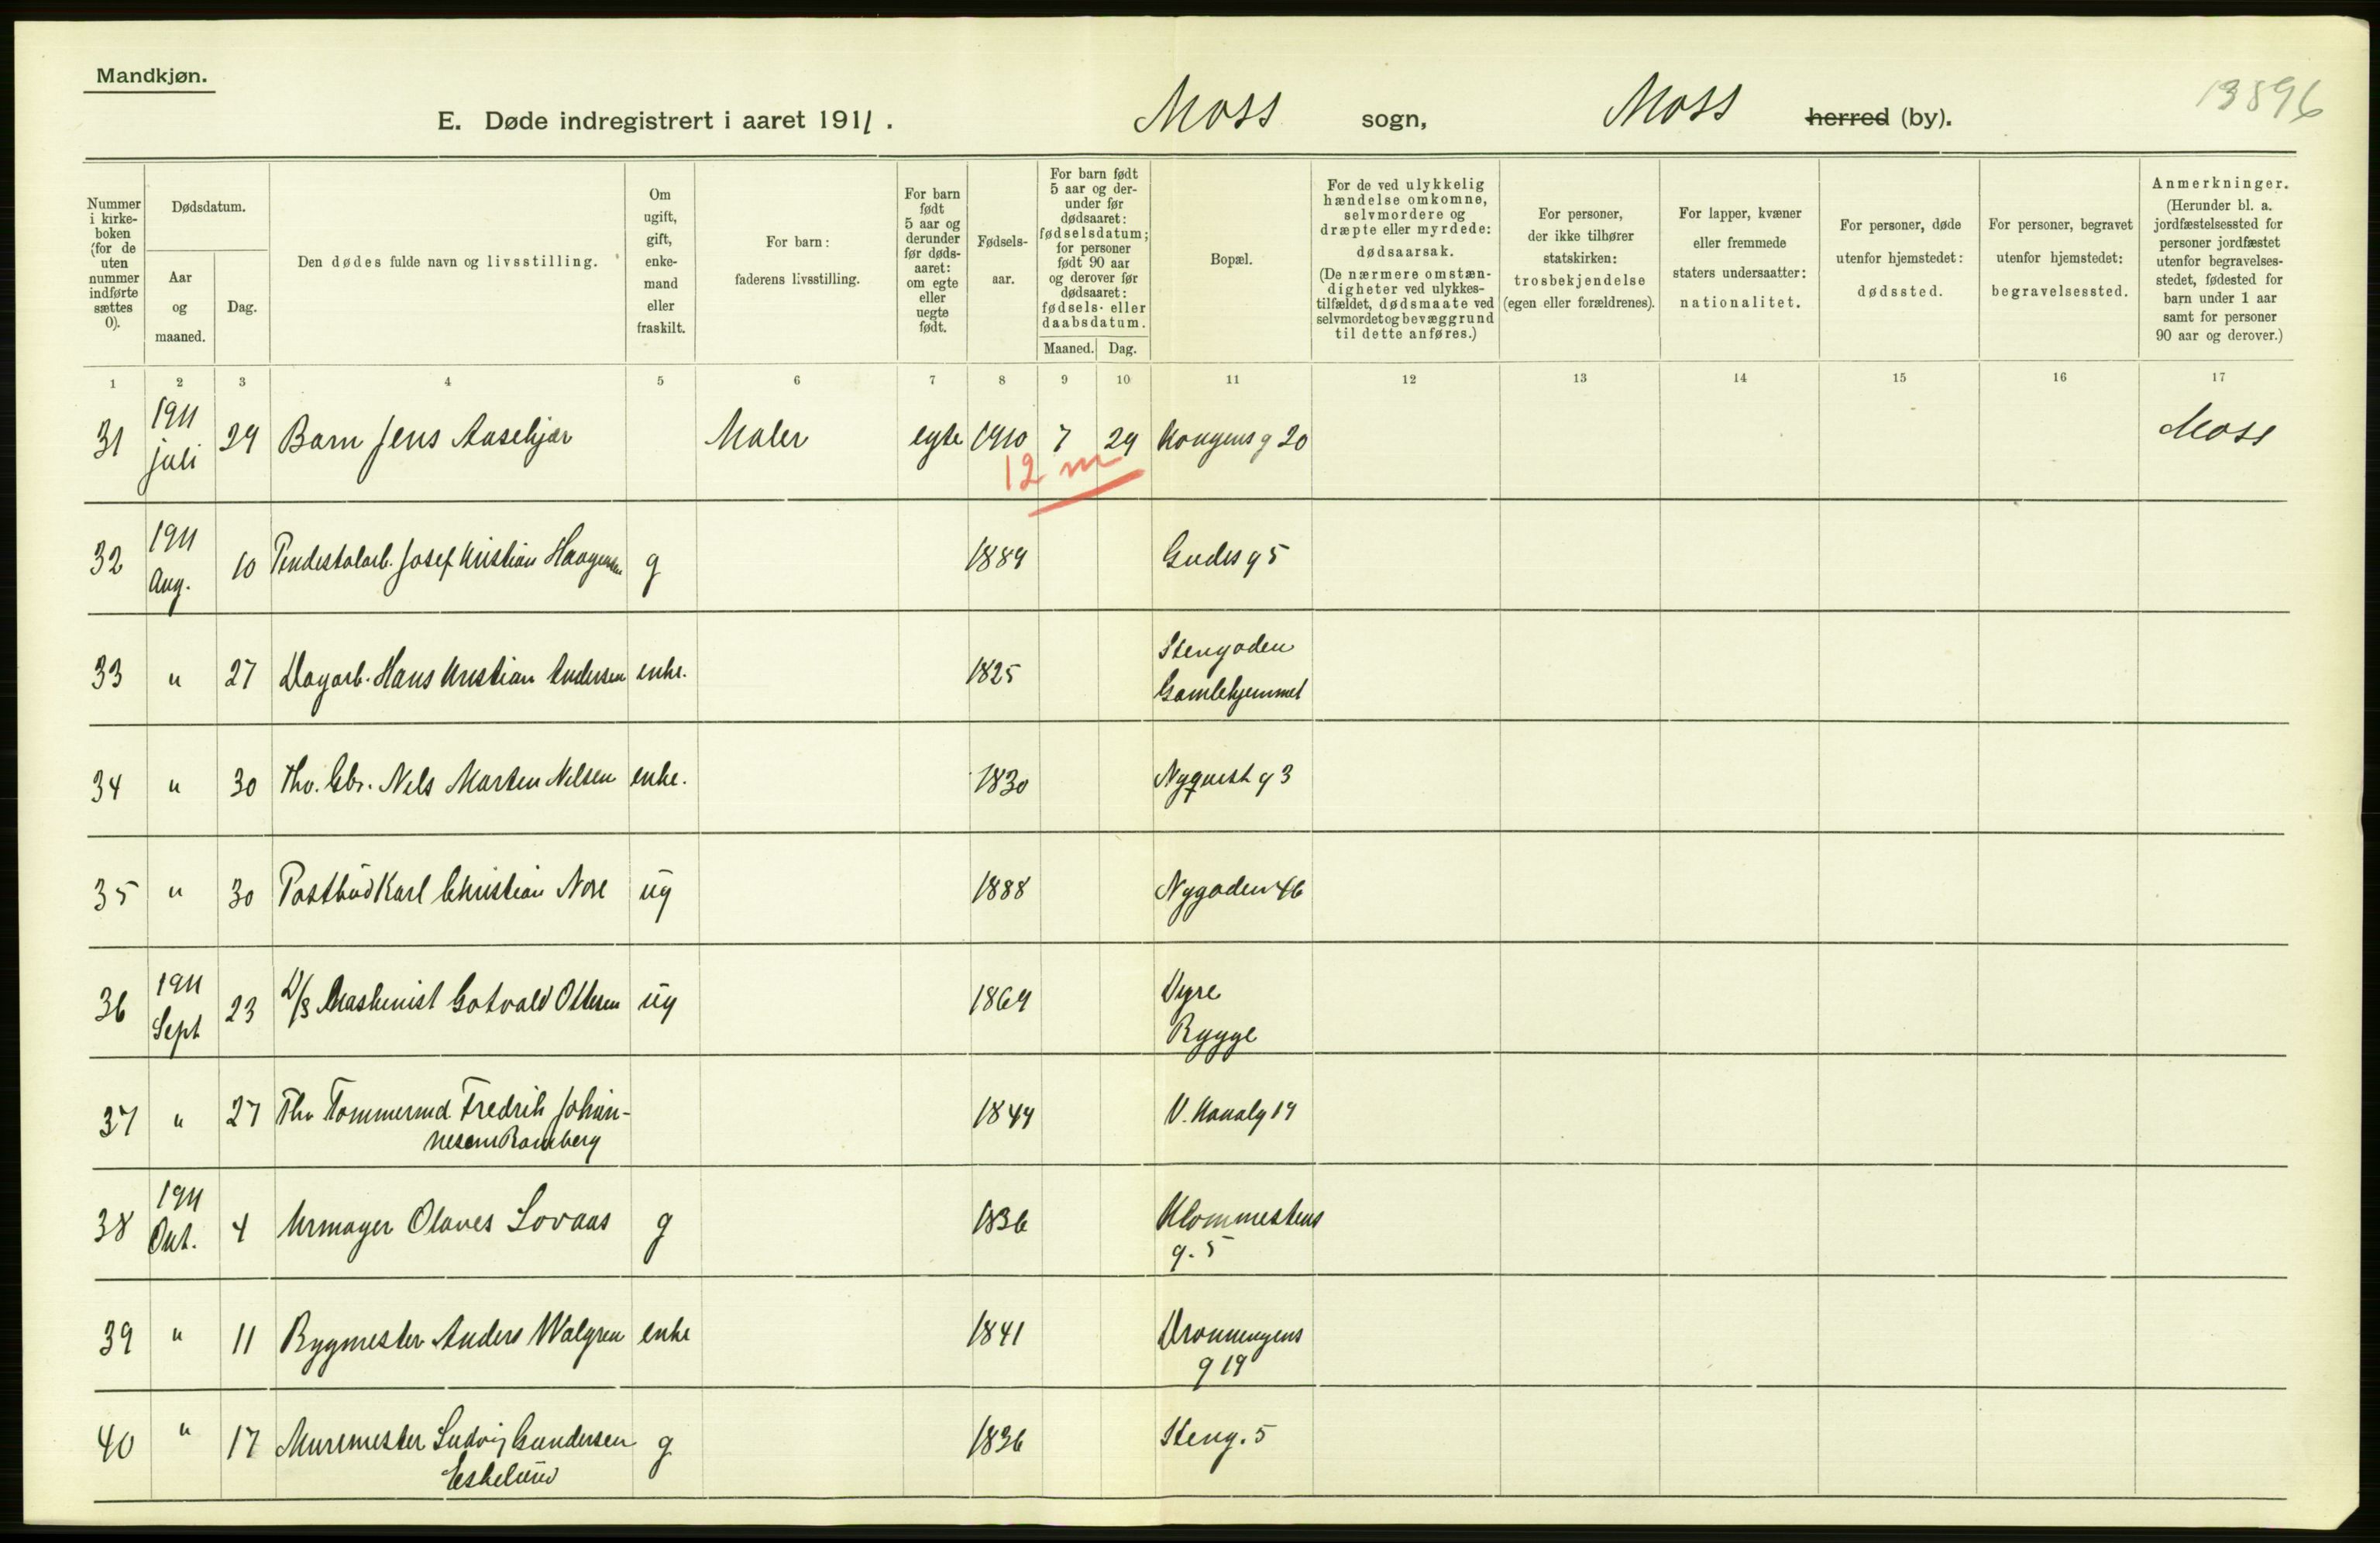 Mandkjøn.
E. Døde indregistrert i aaret 1911. Moss sogn, Moss herred (by). 13596
Nummer i kirke-boken (for de uten nummer indførte sættes 0).
Dødsdatum.
Aar og maaned.
Dag.
Den dødes fulde navn og livsstilling.
Om ugift, gift, enke-mand eller fraskilt.
For barn: faderens livsstilling.
For barn født 5 aar og derunder før døds-aaret: om egte eller uegte født.
Fødsels-aar.
For barn født 5 aar og der-under før dødsaaret: fødselsdatum; for personer født 90 aar og derover før dødsaaret: fødsels- eller daabsdatum.
Maaned. Dag.
Bopæl.
For de ved ulykkelig hændelse omkomne, selvmordere og dræpte eller myrdede: dødsaarsak. (De nærmere omstæn-digheter ved ulykkes-tilfældet, dødsmaate ved selvmordet og bevæggrund til dette anføres.)
For personer, der ikke tilhører statskirken: trosbekjendelse (egen eller forældrenes).
For lapper, kvæner eller fremmede staters undersaatter: nationalitet.
For personer, døde utenfor hjemstedet: dødssted.
For personer, begravet utenfor hjemstedet: begravelsessted.
Anmerkninger. (Herunder bl. a. jordfæstelsessted for personer jordfæstet utenfor begravelses-stedet, fødested for barn under 1 aar samt for personer 90 aar og derover.)
1 2 3 4 5 6 7 8 9 10 11 12 13 14 15 16 17
31 1911 juli 29 Barn Jens Aasekjær Maler egte 1910 7 29 Kongens g 20 Moss
12 m
32 1911 Aug. 10 Josef Kristian Haagensen g 1889 Gudes g 5
33 " 27 Dagarb. Hans Kristian Andersen enke. 1825 Stengaden
Gamlehjemmet
34 " 30 Fhv. Gbr. Nels Marten Nilsen enke. 1830 Nyquist g 3
35 " 30 Postbud Karl Christian Nore ug 1888 Nygaden 46
36 1911 Sept 23 D/S Maskinist Gotvald Ottersen ug 1869 Dyre
Rygge
37 " 27 Fhv Tømmermd. Fredrik Johan-
nesen Ramberg 1849 V. Kanalg 19
38 1911 Okt. 4 Urmager Olaves Lovaas g 1836 Klommestens
g. 5
39 " 11 Bygmester Anders Walgren enke 1841 Dronningens
g 19
40 " 17 Murermester Ludvig Gundersen
Eskelund g 1836 Steng. 5